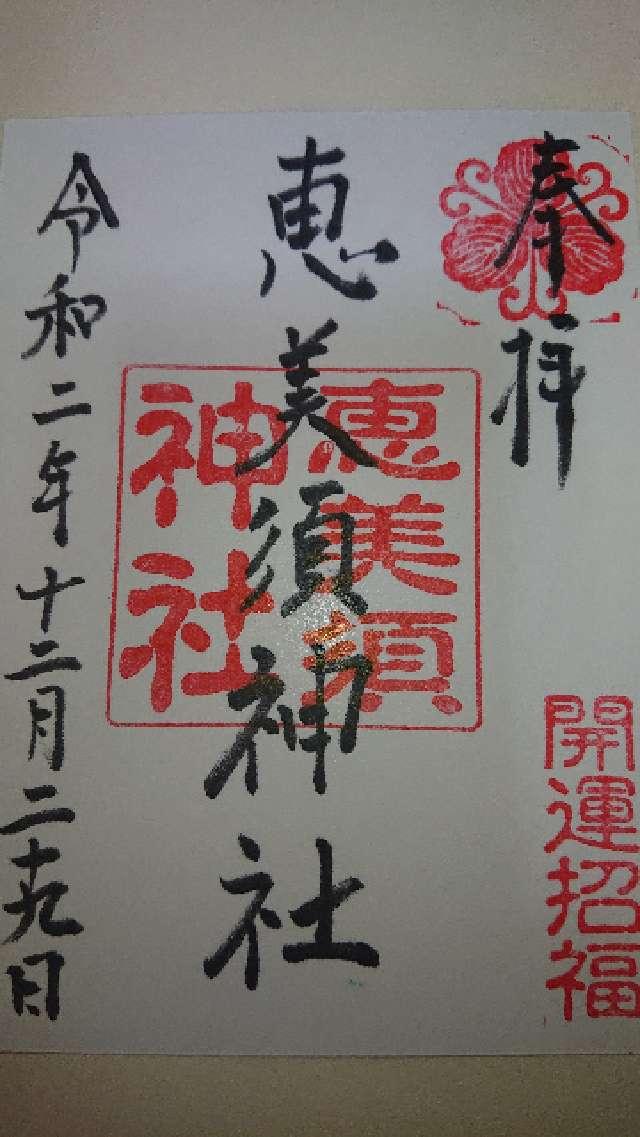 奉拝
開運招福
恵美須神社
恵美須
神社
令和二年十二月二十九日